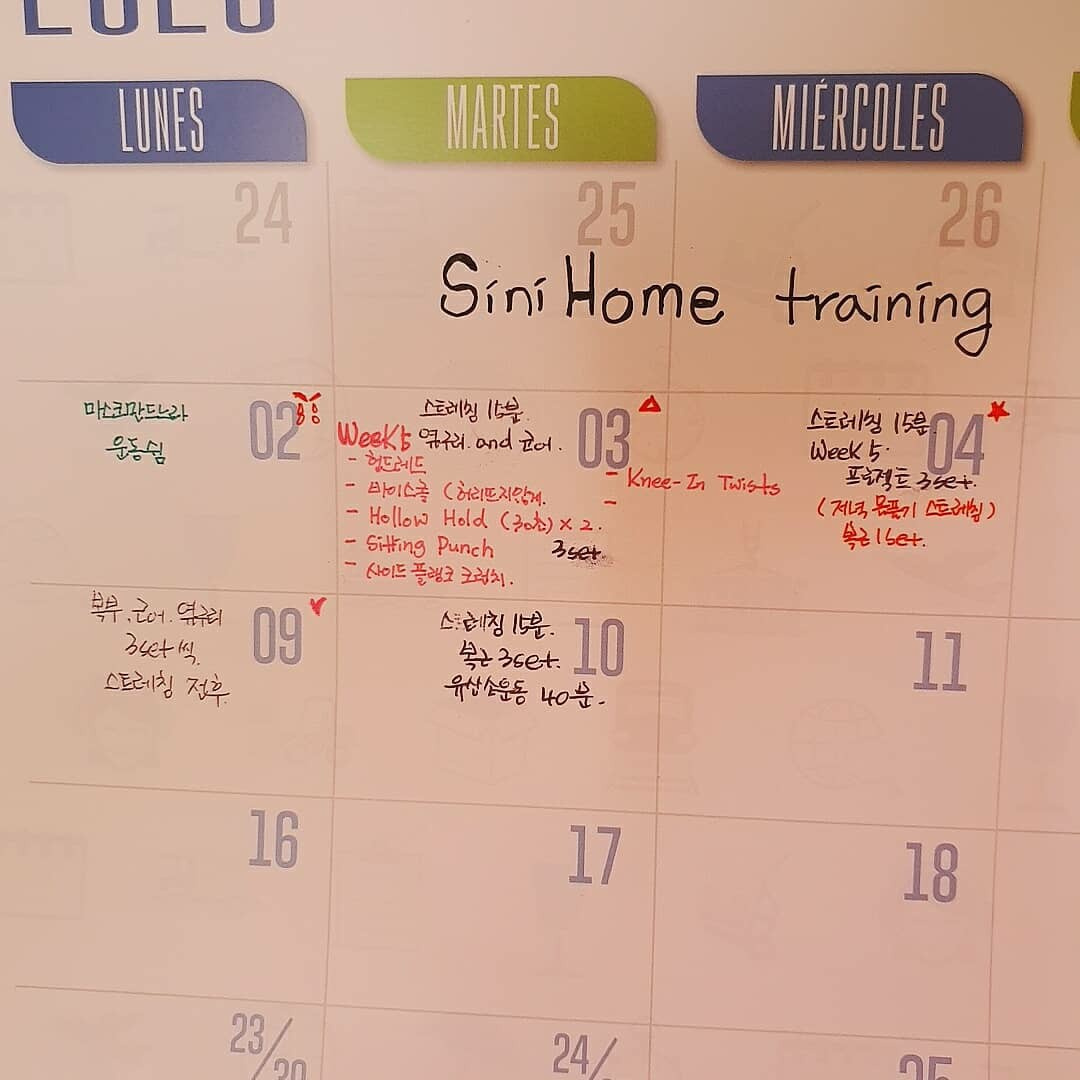 LUNES MARTES MIÉRCOLES
24 25 26
Sini Home training
02
마스크만드느라
운동쉼
03
스트레칭 15분.
Week 5 옆구리. and 코어.
- 헌드레드
- 바이시클 (허리뜨지않게.
- Hollow Hold (30초) × 2.
- Sitting Punch 3set.
- 사이드 플랭크 크런치.
- Knee-In Twists
-
04
스트레칭 15분.
Week 5.
프로젝트 3set.
(저녁 몸풀기 스트레칭)
복근 1set.
09
복부, 코어. 옆구리
3set씩.
스트레칭 전후.
10
스트레칭 15분.
복근 3set.
유산소운동 40분.
11
16 17 18
23/30 24/ 25